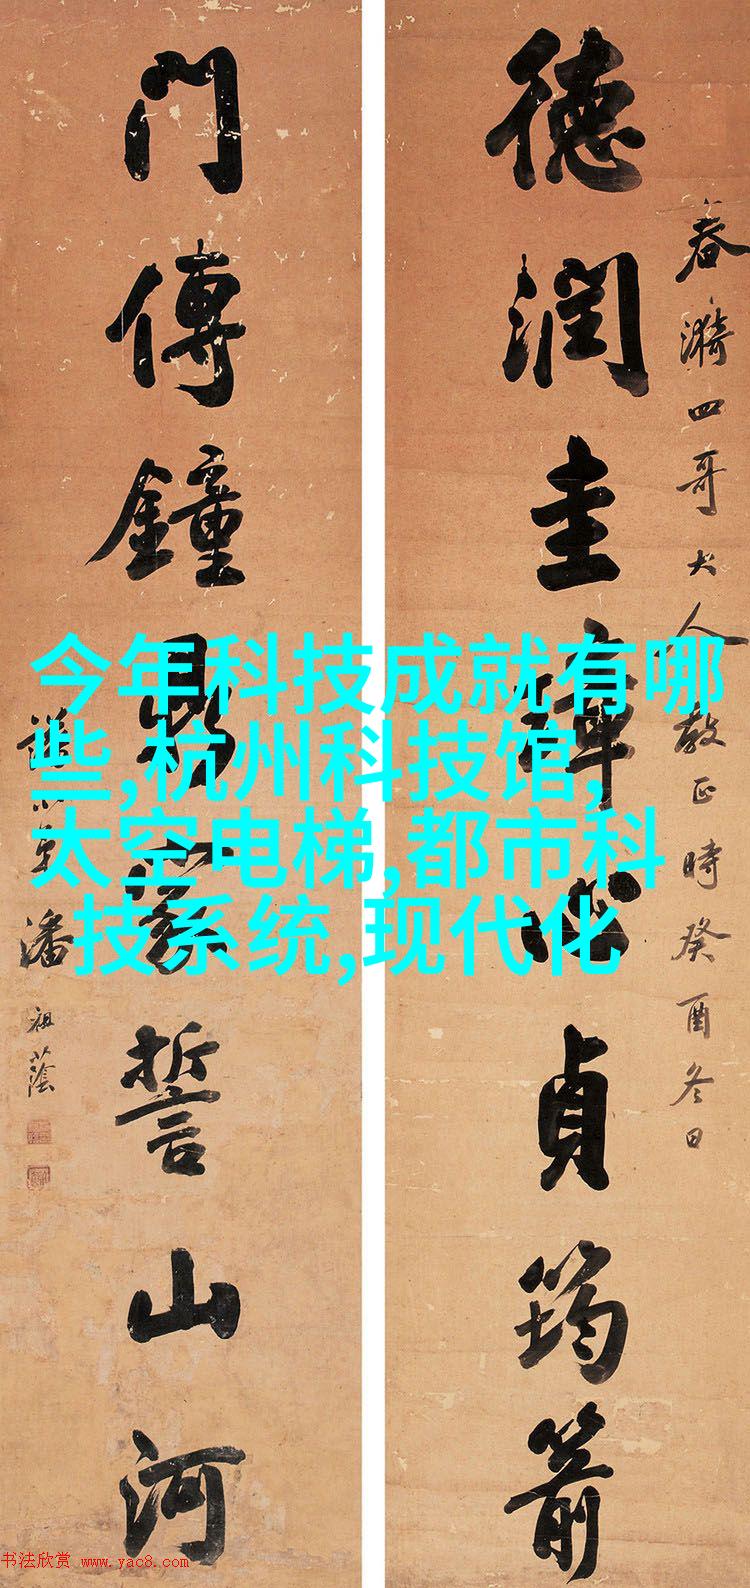 春漪四哥大人教正時癸酉冬日
德潤圭璋心貞筠箭
門傳鐘鼎家誓山河
弟潘祖蔭
今年科技成就有哪
些,杭州科技馆,
太空电梯,都市科
技系统,现代化
书法欣赏 www.yac8.com